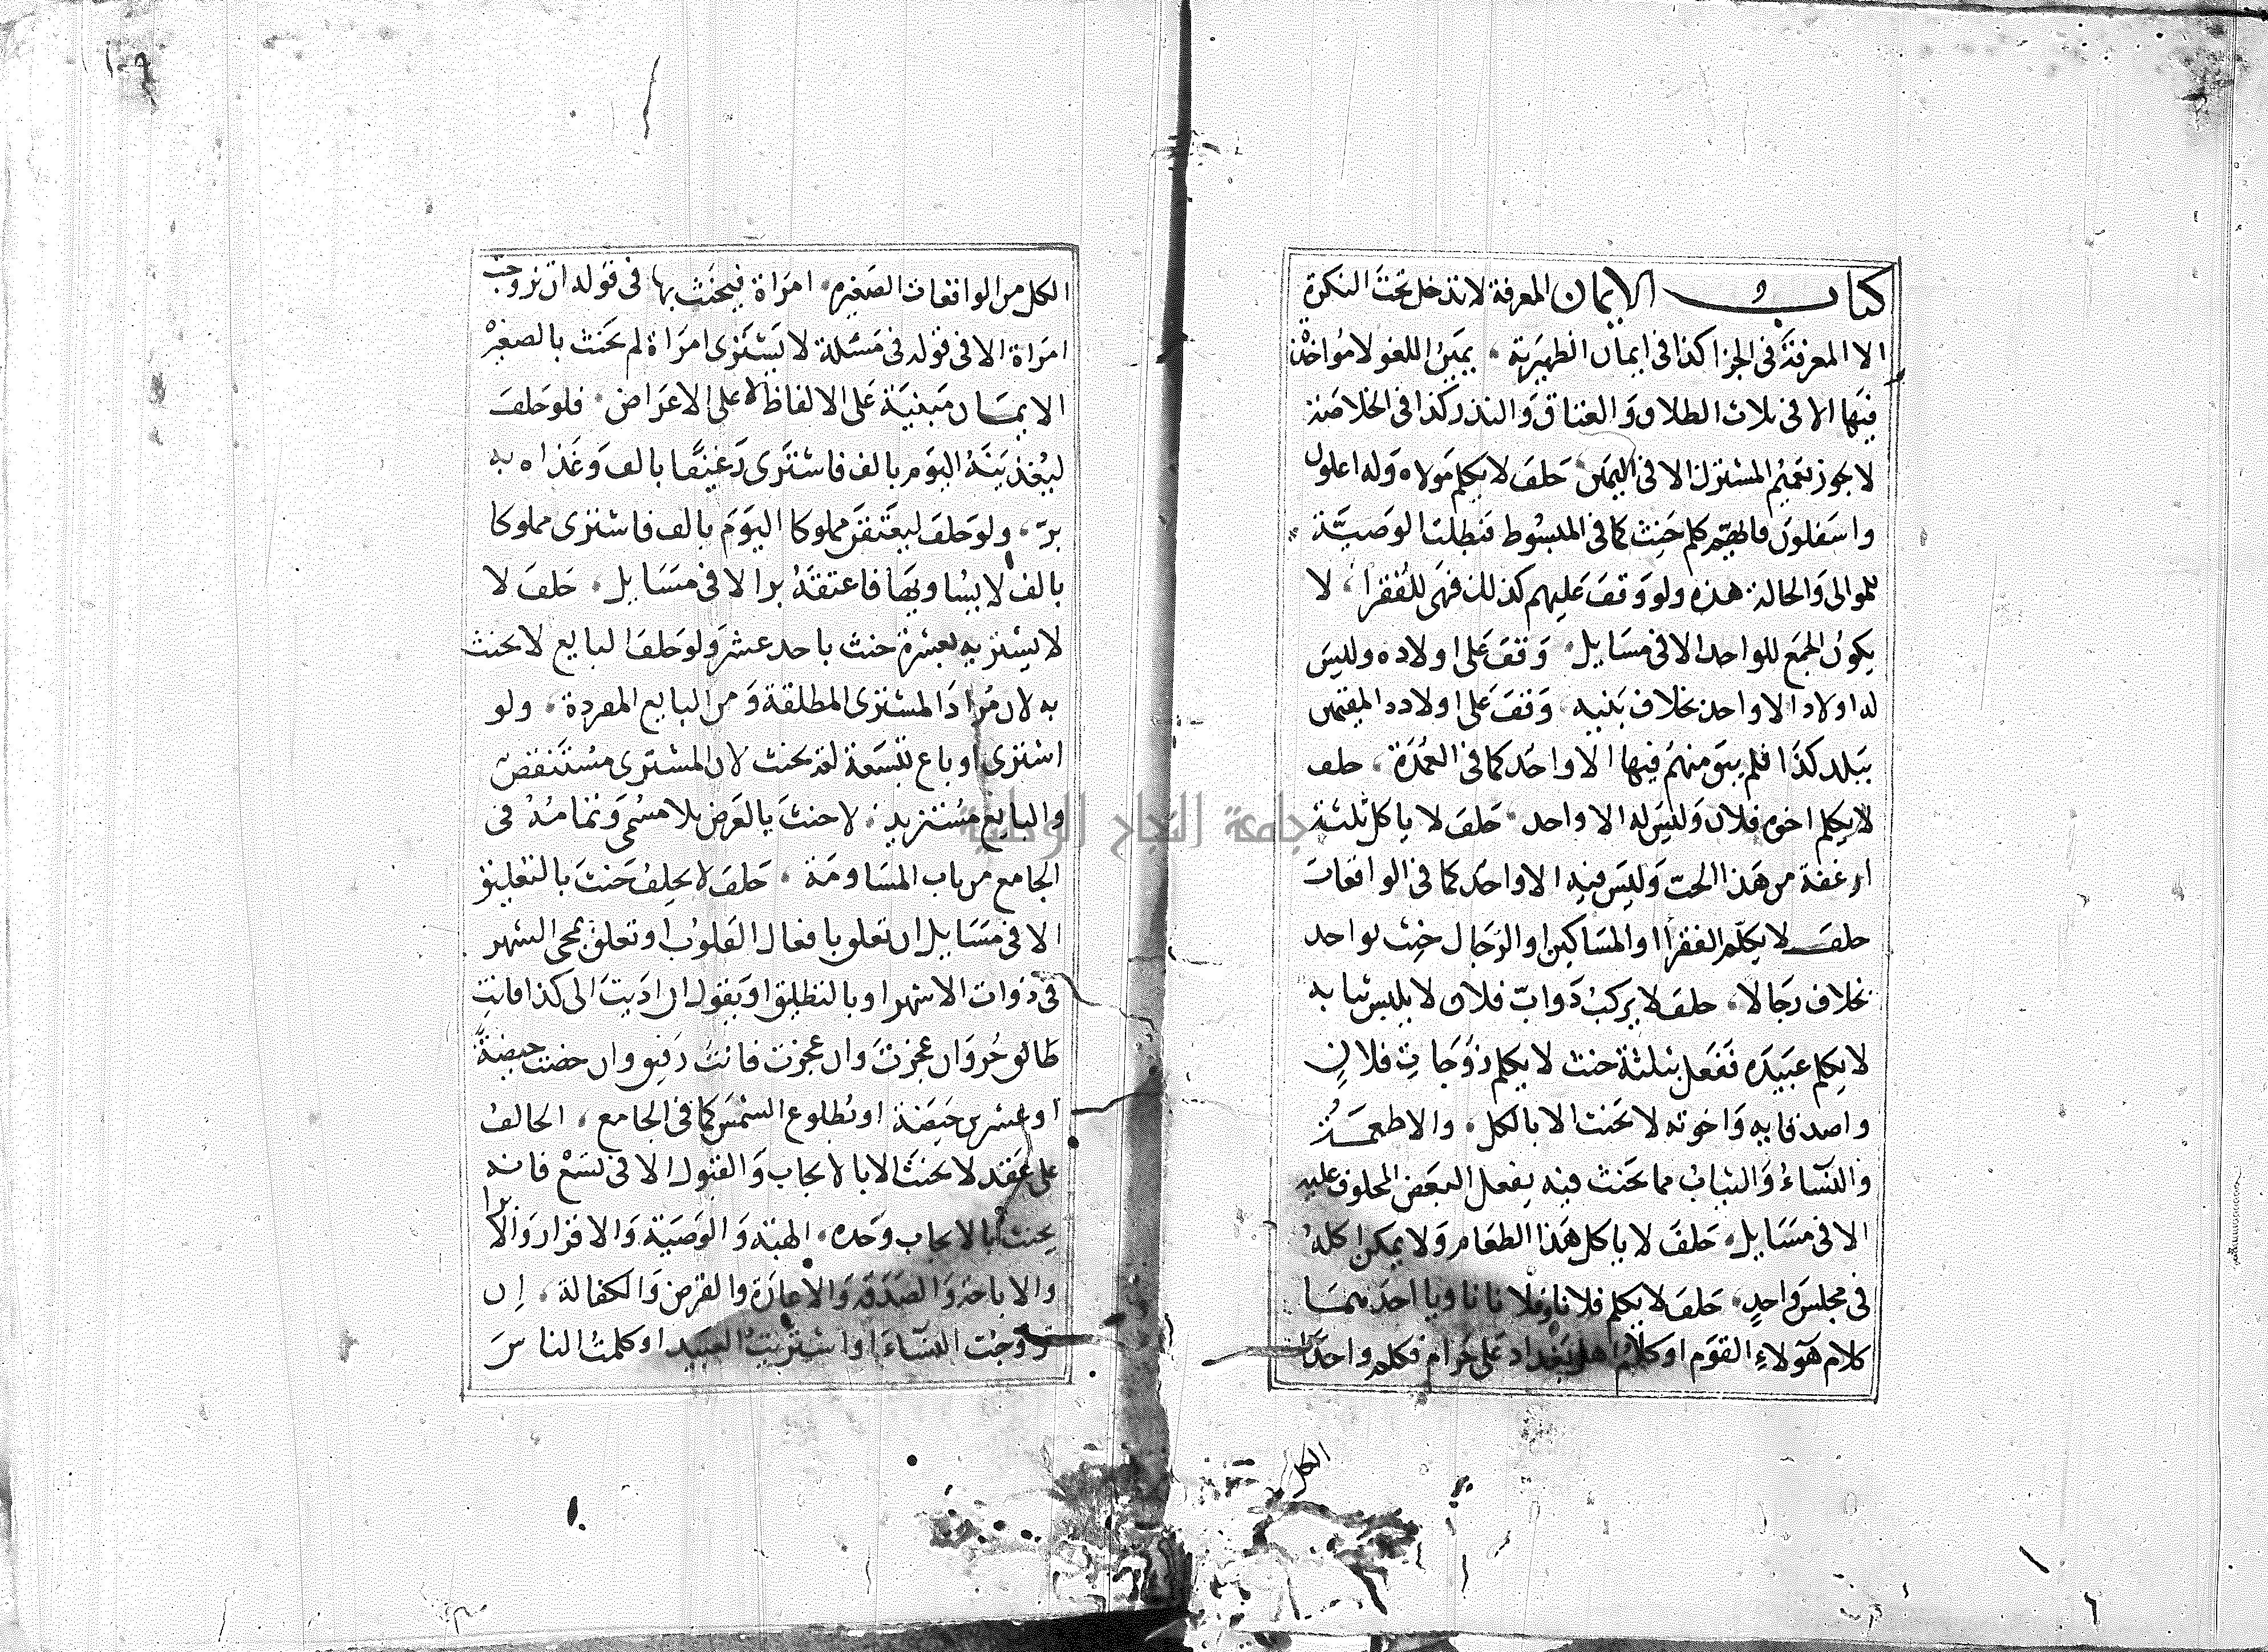 كتاب الايمان المعرفة لا تدخل تحت النكرة
الا المعرفة في الجزا كذا في ايمان الظهيرية يمين اللغو لا مواخذة
فيها الا في ثلاث الطلاق والعتاق والنذر كذا في الخلاصة
لا يجوز تعميم المشترك الا في اليمين حلف لا يكلم مولاه وله اعلون
واسفلون فايهم كلم حنث كما في المبسوط فبطلت الوصية
للموالي والحالة هذه ولو وقف عليهم كذلك فهي للفقرا لا
يكون الجمع للواحد الا في مسايل وقف على اولاده وليس
له اولاد الا واحد بخلاف بنيه وقف على اولاده المقيمين
ببلد كذا فلم يبق منهم فيها الا واحد كما في العمدة حلف
لا يكلم اخوة فلان وليس له الا واحد حلف لا ياكل ثلثة
ارغفة من هذا الحب وليس فيه الا واحد كما في الواقعات
حلف لا يكلم الفقرا او المساكين او الرجال حنث بواحد
بخلاف رجالا حلف لا يركب دواب فلان لا يلبس ثيابه
لا يكلم عبيده ففعل بثلثة حنث لا يكلم زوجات فلان
واصدقايه واخوته لا يحنث الا بالكل والاطعمة
والنساء والثياب مما يحنث فيه بفعل البعض المحلوف عليه
الا في مسايل حلف لا ياكل هذا الطعام ولا يمكن اكله
في مجلس واحد حلف لا يكلم فلانا وفلانا ناويا احدهما
كلام هولاء القوم او كلام اهل بغداد على حرام فكلم واحدا
الكل
١٠٩
الكل من الواقعات الصغيرة امراة فيحنث بها في قوله ان تزوجت
امراة الا في قوله في مسئلة لا يشتري امراة لم يحنث بالصغيرة
الايمان مبنية على الالفاظ لا على الاغراض فلو حلف
ليغدينه اليوم بالف فاشترى رغيفا بالف وغداه به
بر ولو حلف ليعتقن مملوكا اليوم بالف فاشترى مملوكا
بالف لا يساويها فاعتقه بر الا في مسايل حلف لا
لا يشتريه بعشرة حنث باحد عشر ولو حلف البايع لا يحنث
به لان مراد المشتري المطلقة ومن البايع المفردة ولو
اشترى او باع بتسعة لم يحنث لان المشتري مستنقص
والبايع مستزيد لا حنث بالغرض بلا مسمى وتمامه في
الجامع من باب المساومة حلف لا يحلف حنث بالتعليق
الا في مسايل ان تعلق بافعال القلوب او تعلق بمجي الشهر
في ذوات الاشهر او بالتطليق او يقول ان اديت الى كذا فانت
طالق حر وان عجزت وان عجزت فانت رقيق وان حضت حيضة
او عشرين حيضة او بطلوع الشمس كما في الجامع الحالف
على عقد لا يحنث الا بالايجاب والقبول الا في تسع فانه
يحنث بالايجاب وحده الهبة والوصية والاقرار والابرا
والاباحة والصدقة والاعارة والقرض والكفالة ان
تزوجت النساء او اشتريت العبيد او كلمت الناس
جامعة النجاح الوطنية